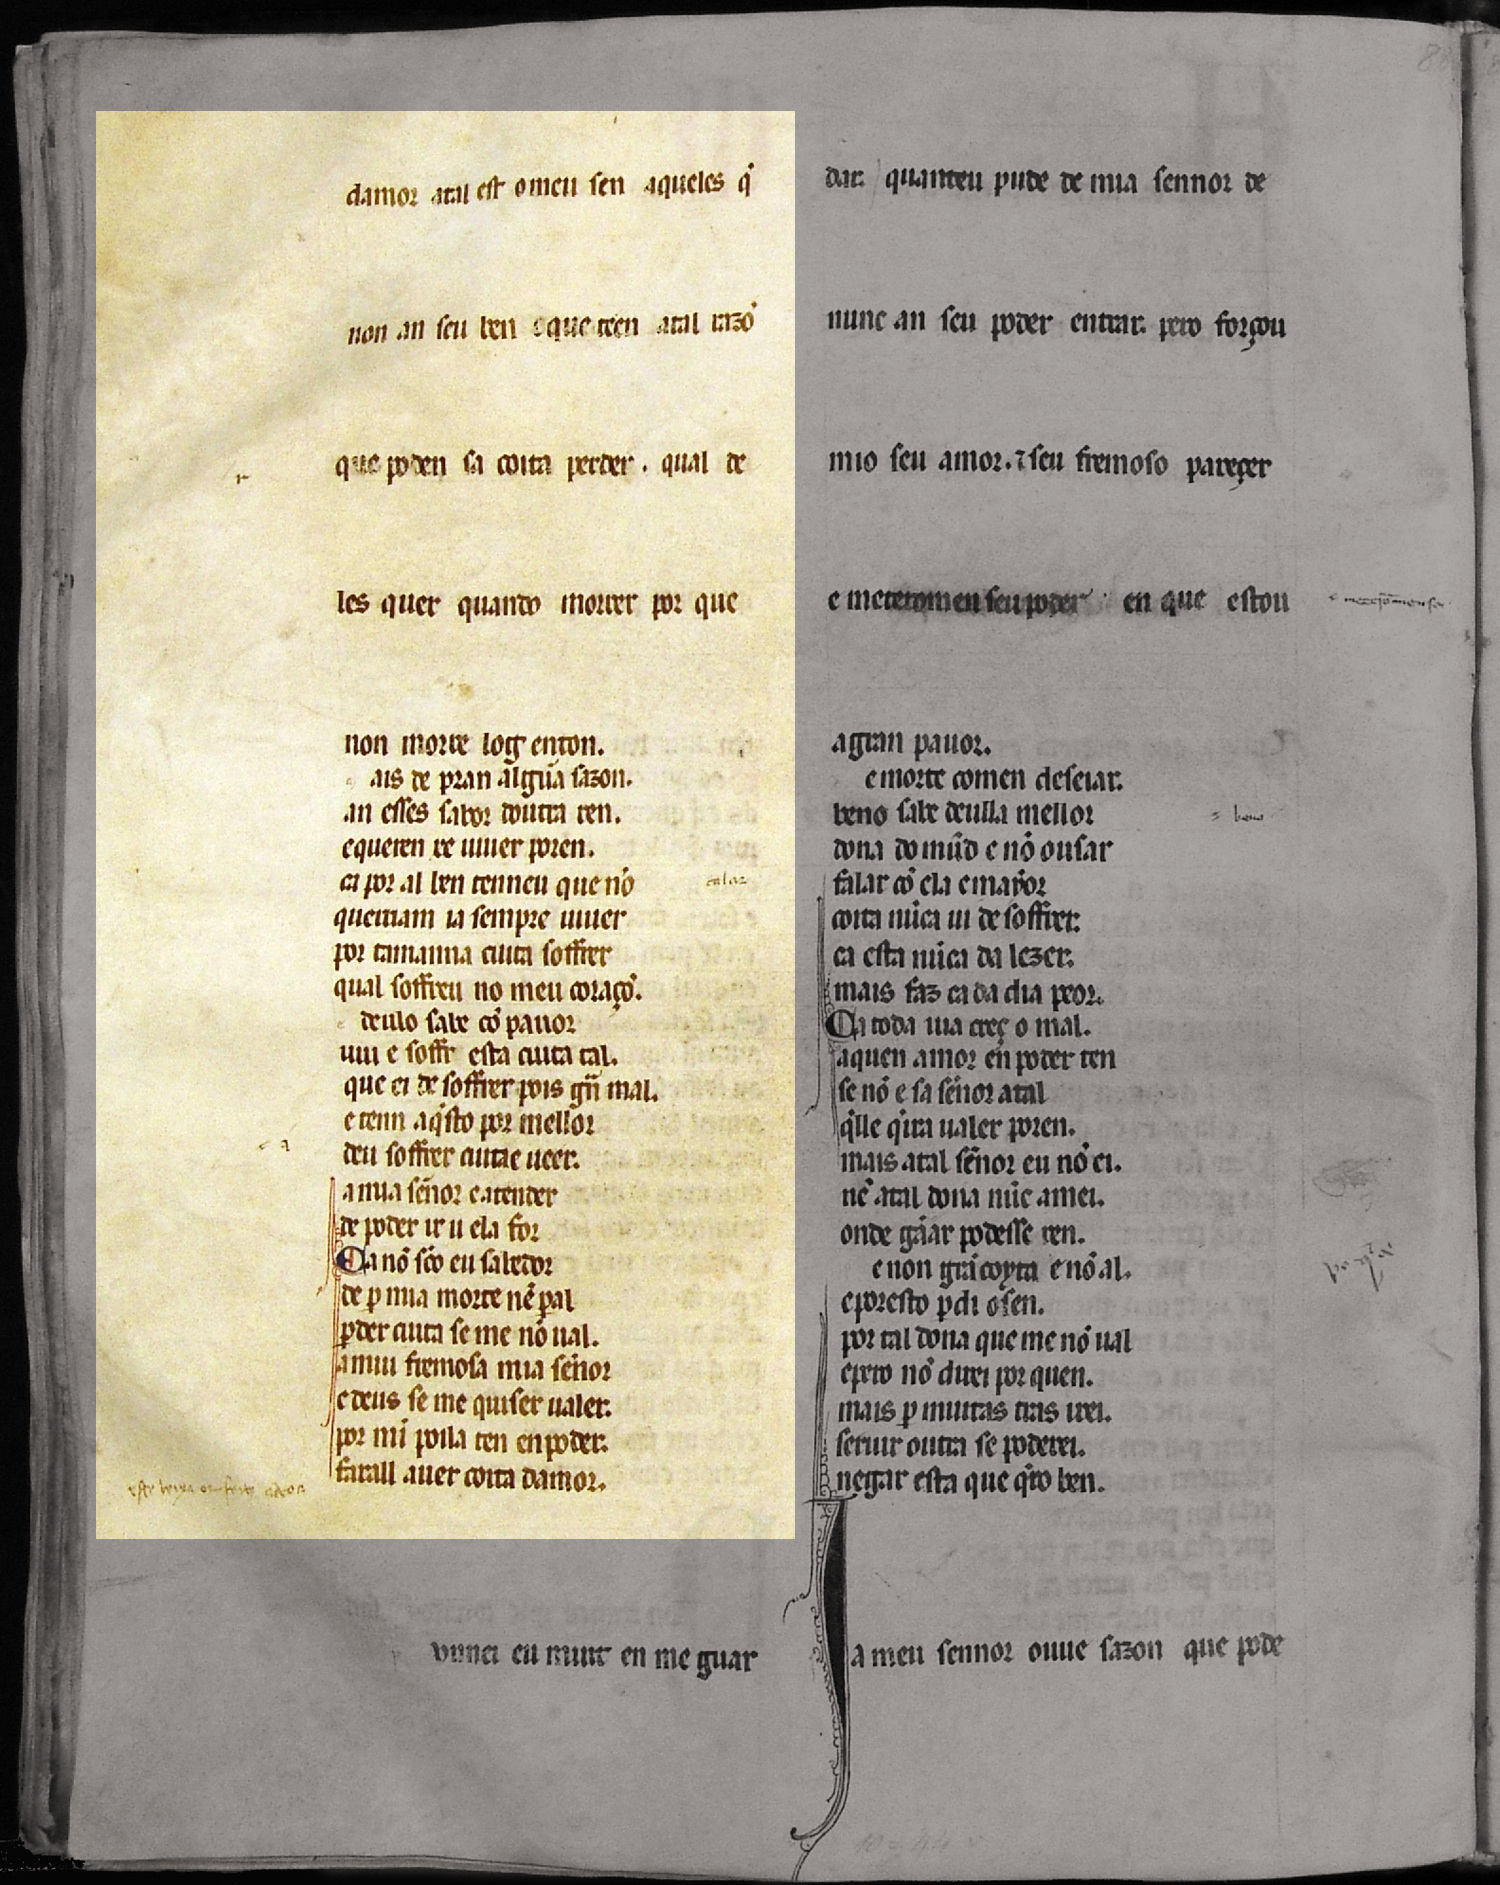 damor atal est o meu sen aqueles q̃
non an seu ben e que teen atal razõ
que poden sa coita perder . qual de
les quer quando morrer por que
non morre log enton.
ais de pran algũa sazon.
an esses sabor doutra ren.
e queren xe uiuer poren.
ca por al ben tenneu que nõ
querriam ia sempre uiuer
por tamanna cuita soffrer
qual soffreu no meu coraçõ.
deulo sabe cõ pauor
uiu e soffr esta cuita tal.
que ei de soffrer pois grñ mal.
e tenn aq̃sto por mellor
deu soffrer cuitae ueer.
a mia sẽnor e atender
de poder ir u ela for
Ca nõ sõo eu sabedor
de p mia morte nẽ pal
pder cuita se me nõ ual.
a miu fremosa mia sẽnor
e deus se me quiser ualer.
por mĩ poila ten en poder.
farall auer coita damor.
unnca eu muit en me guar
dar. quanteu pude de mia sennor de
nunc an seu poder entrar. pero forçou
mio seu amor. ⁊ seu fremoso pareçer
e meteromen seu poder en que estou
a gran pauor.
e morte comen deseiar.
beno sabe deulla mellor
dona do mũdo e nõ ousar
falar cõ ela e mayor
coita nũca ui de soffrer.
ca esta nũca da lezer.
mais faz cada dia peor.
Ca toda uia creç o mal.
a quen amor en poder ten
se nõ e sa sẽnor atal
q̃lle q̃ira ualer poren.
mais atal sẽnor eu nõ ei.
nẽ atal dona nũc amei.
onde gãar podesse ren.
e non grã coyta e nõ al.
e poresto pdi o sen.
por tal dona que me nõ ual
e pero nõ direi por quen.
mais p muitas tras irei.
seruir outra se poderei.
negar esta que q̃ro ben.
Ia meu sennor ouue sazon que pode